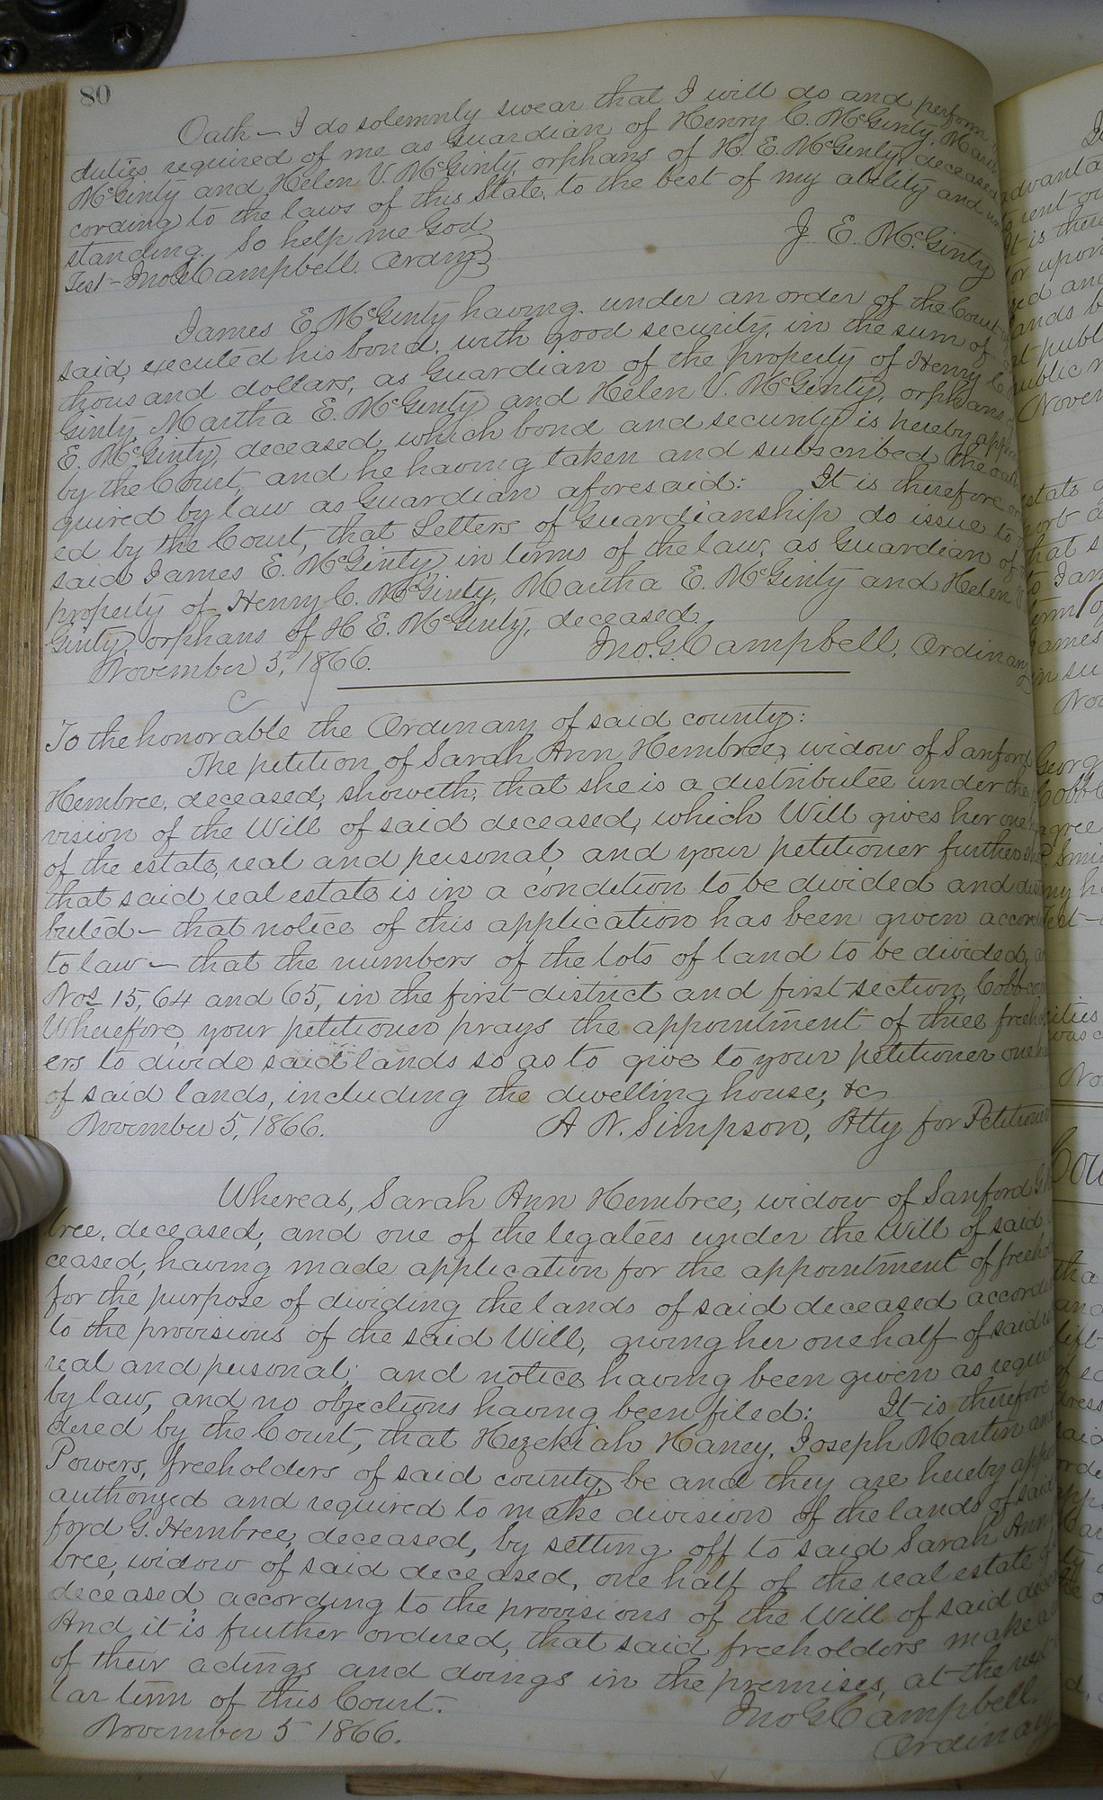 80
Oath – I do solemnly swear that I will do and perform
duties required of me as Guardian of Henry C. McGinty,
McGinty and Helen V. McGinty, orphans of H. E. McGinty, deceased
cording to the laws of this State, to the best of my ability and
standing. So help me God
J. E. McGinty
Test – Jno. G. Campbell, Ordny
James E. McGinty having, under an order of the Court
said, executed his bond, with good security, in the sum of
thousand dollars, as Guardian of the property of Henry C.
Ginty, Martha E. McGinty and Helen V. McGinty, orphans
E. McGinty, deceased, which bond and security is hereby
by the Court, and he having taken and subscribed the oath
quired by law as Guardian aforesaid: It is therefore
ed by the Court, that Letters of Guardianship do issue to
said James E. McGinty in terms of the law, as Guardian of
property of Henry C. McGinty, Martha E. McGinty and Helen
Ginty, orphans of H E. McGinty, deceased.
November 5, 1866. Jno. G. Campbell, Ordinary
To the honorable the Ordinary of said county:
The petition of Sarah Ann Hembree, widow of Sanford
Hembree, deceased, showeth, that she is a distributee under the
vision of the Will of said deceased, which Will gives her one
of the estate, real and personal, and your petitioner further
that said real estate is in a condition to be divided and
buted – that notice of this application has been given
to law – that the numbers of the lots of land to be divided,
Nos 15, 64 and 65, in the first district and first section, Cobb
Wherefore, your petitioner prays the appointment of three
ers to divide said lands so as to give to your petitioner one
of said lands, including the dwelling house, &c
November 5, 1866. A. N. Simpson, Atty for Petitioner
Whereas, Sarah Ann Hembree, widow of Sanford G.
bree, deceased, and one of the legatees under the Will of said
ceased, having made application for the appointment of
for the purpose of dividing the lands of said deceased
to the provisions of the said Will, giving her one half of said
real and personal; and notice having been given as
by law, and no objections having been filed: It is therefore
dered by the Court, that Hezekiah Haney, Joseph Martin and
Powers, freeholders of said county, be and they are hereby
authorized and required to make division of the lands of said
ford G. Hembree, deceased, by setting off to said Sarah Ann
bree, widow of said deceased, one half of the real estate of
deceased according to the provisions of the Will of said
And it is further ordered, that said freeholders make a
of their actings and doings in the premises, at the next
lar term of this Court.
November 5 1866. Jno. G. Campbell,
Ordinary